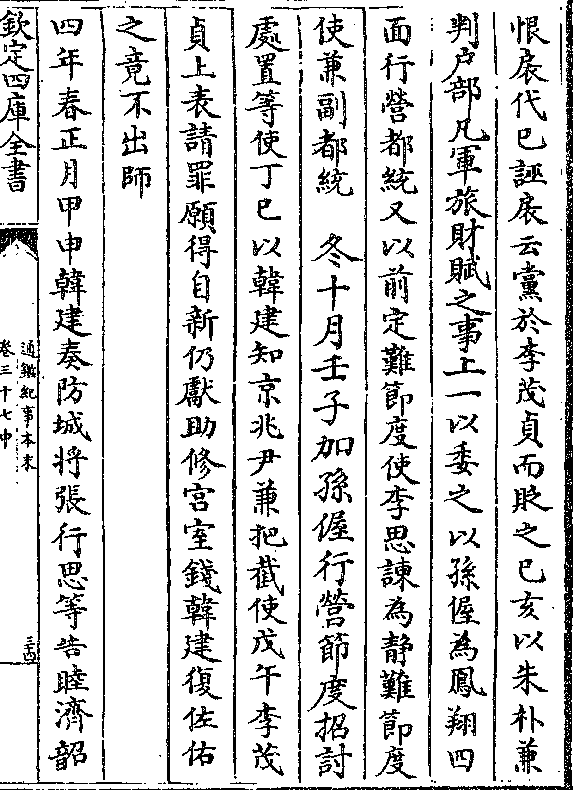 恨扆代已誣扆云黨於李茂貞而貶之己亥以朱朴兼
判户部凡軍旅財賦之事上一以委之以孫偓為鳳翔四
面行營都統又以前定難節度使李思諫為静難節度
使兼副都統　冬十月壬子加孫偓行營節度招討
處置等使丁巳以韓建知京兆尹兼把截使戊午李茂
貞上表請罪願得自新仍獻助修宫室錢韓建復佐佑
之竟不出師
四年春正月甲申韓建奏防城将張行思等告睦濟韶
欽定四庫全書
通鑑紀事本末
卷三十七中
三四